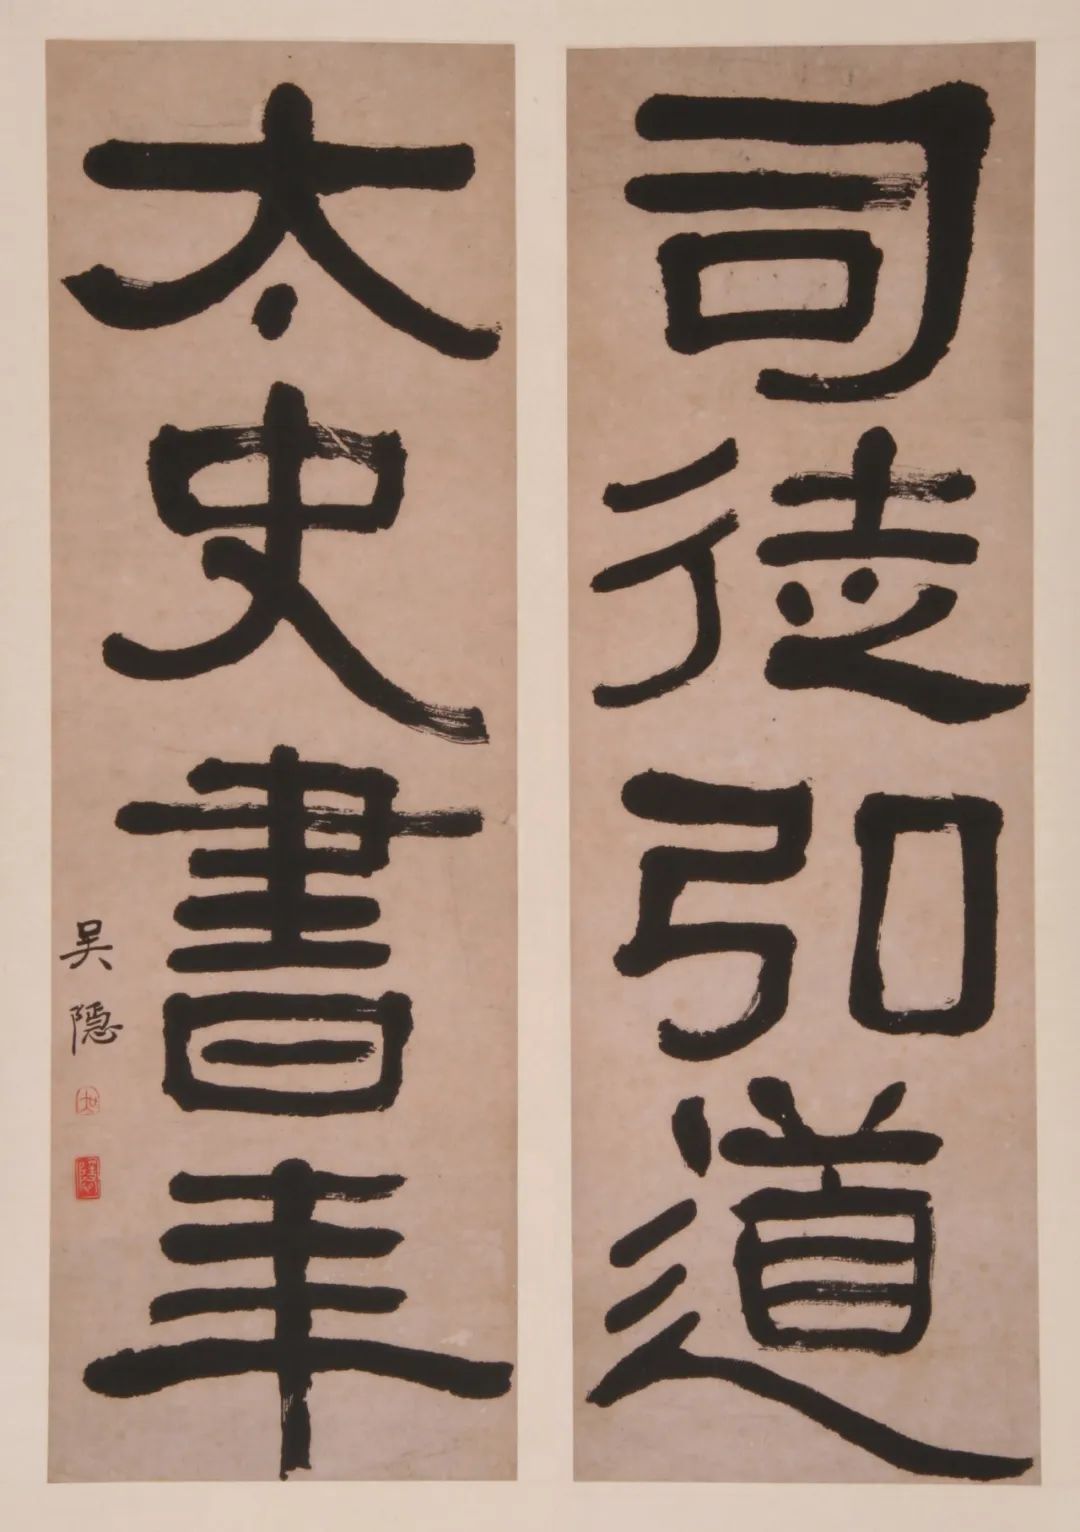 司徒弘道
太史書年
吴隱
隱